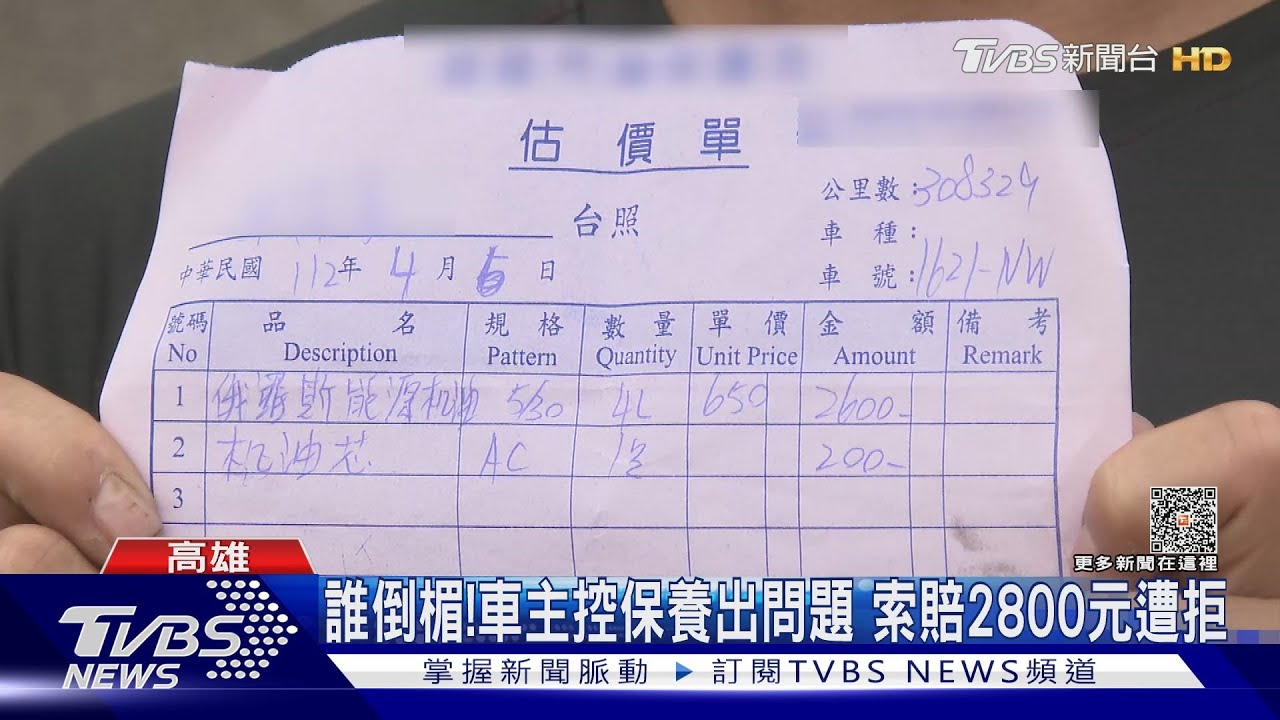 TVBS新聞台 HD
估價單
台照
公里數:308324
車種:
中華民國 112年 4月 6日
車號:1621-NW
號碼 品名 規格 數量 單價 金額 備考
No Description Pattern Quantity Unit Price Amount Remark
1 俄羅斯能源机油 5/30 4L 650 2600-
2 机油芯 AC 200-
3
更多新聞在這裡
高雄
誰倒楣!車主控保養出問題 索賠2800元遭拒
TVBS NEWS
掌握新聞脈動 ▶ 訂閱TVBS NEWS頻道